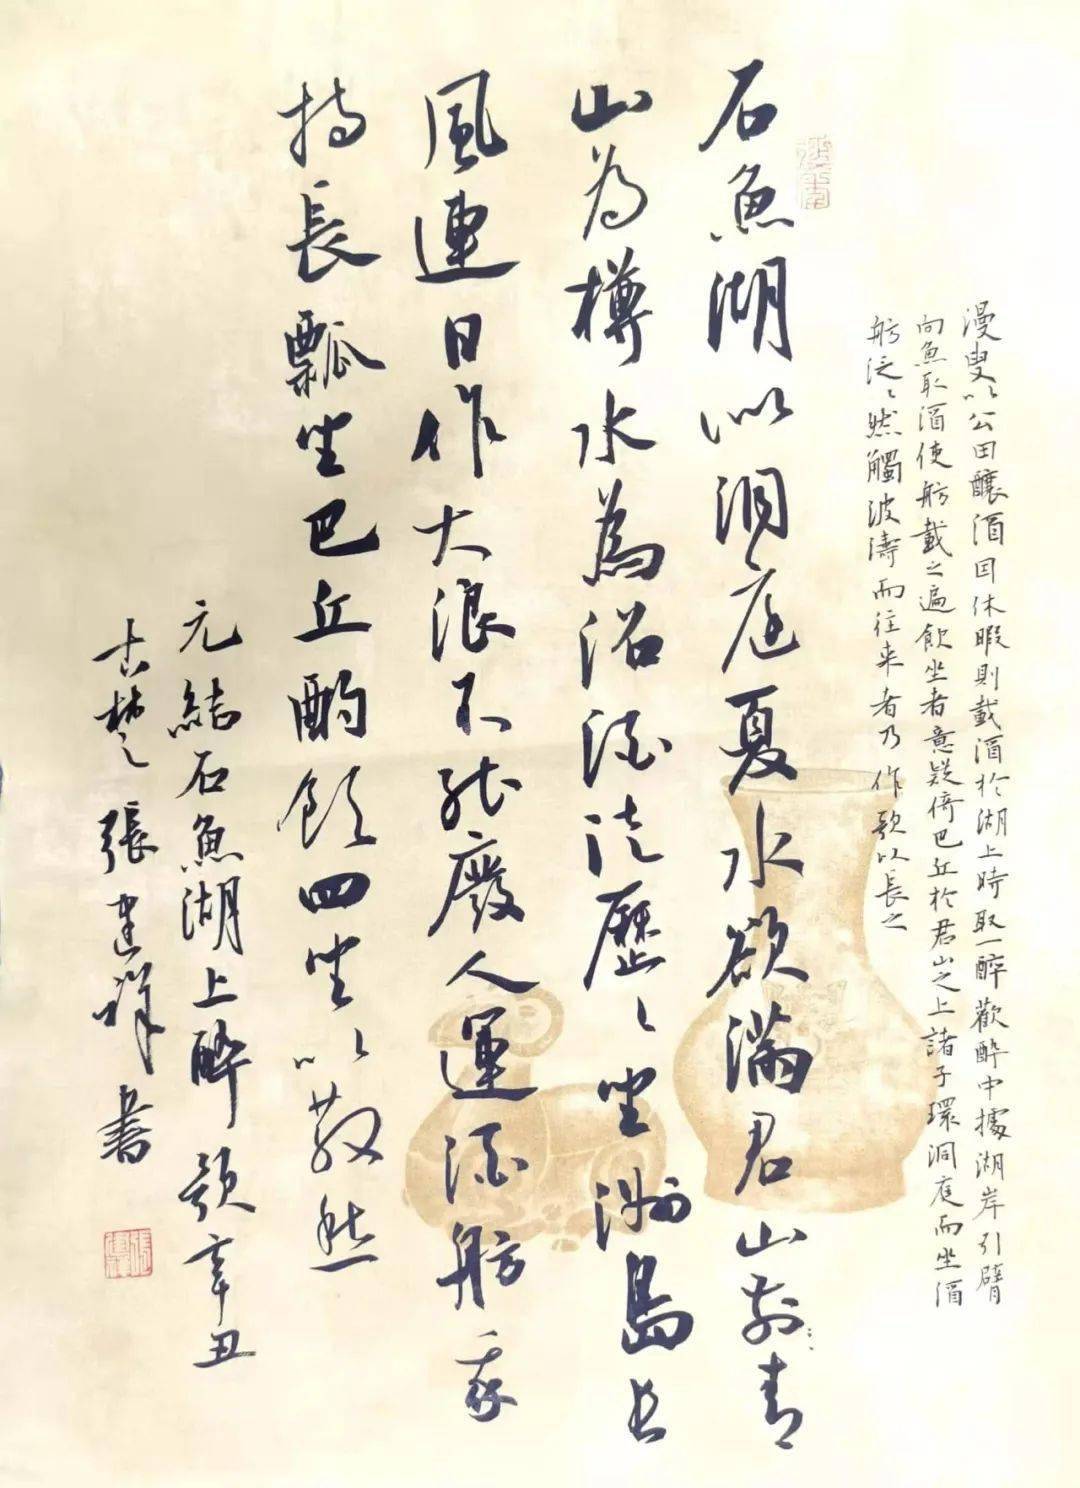 漫叟以公田釀酒因休暇則載酒於湖上時取一醉歡醉中據湖岸引臂
向魚取酒使舫載之遍飲坐者意疑倚巴丘於君山之上諸子環洞庭而坐酒
舫泛〻然觸波濤而往來者乃作歌以長之
石魚湖似洞庭夏水欲滿君山前青
山為樽水為沼酒徒歷〻坐洲島長
風連日作大浪不能廢人運酒舫我
持長瓢坐巴丘酌飲四坐以散愁
元結石魚湖上醉歌辛丑
古楚張建祥書